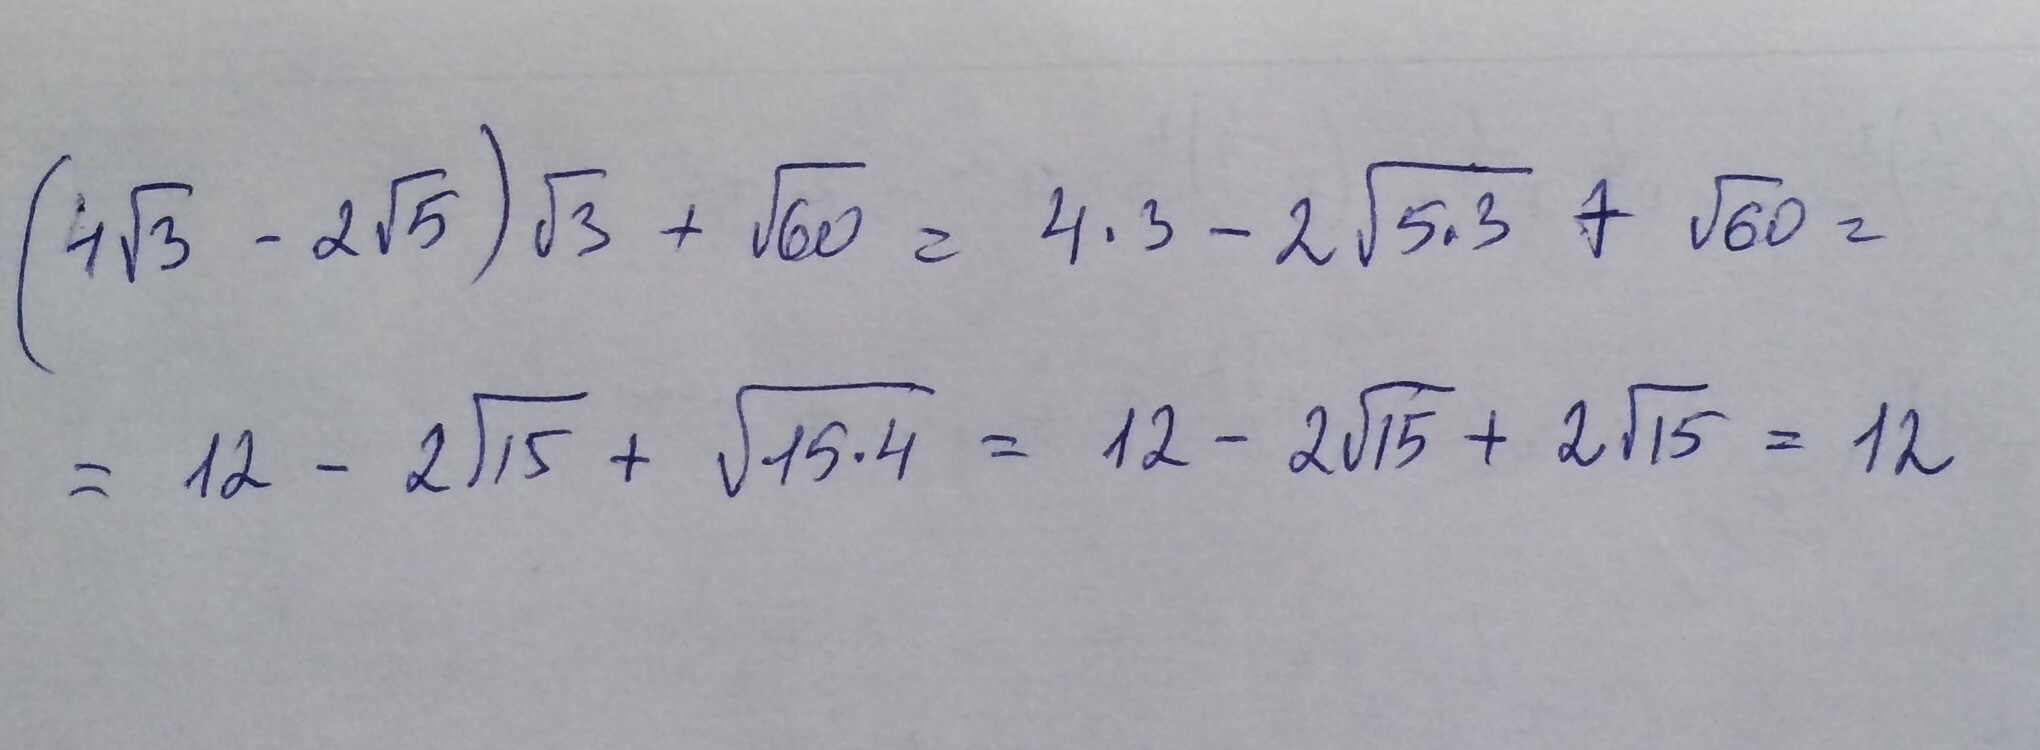 (4√3 - 2√5)√3 + √60 = 4·3 - 2√5·3 + √60 =
= 12 - 2√15 + √15·4 = 12 - 2√15 + 2√15 = 12